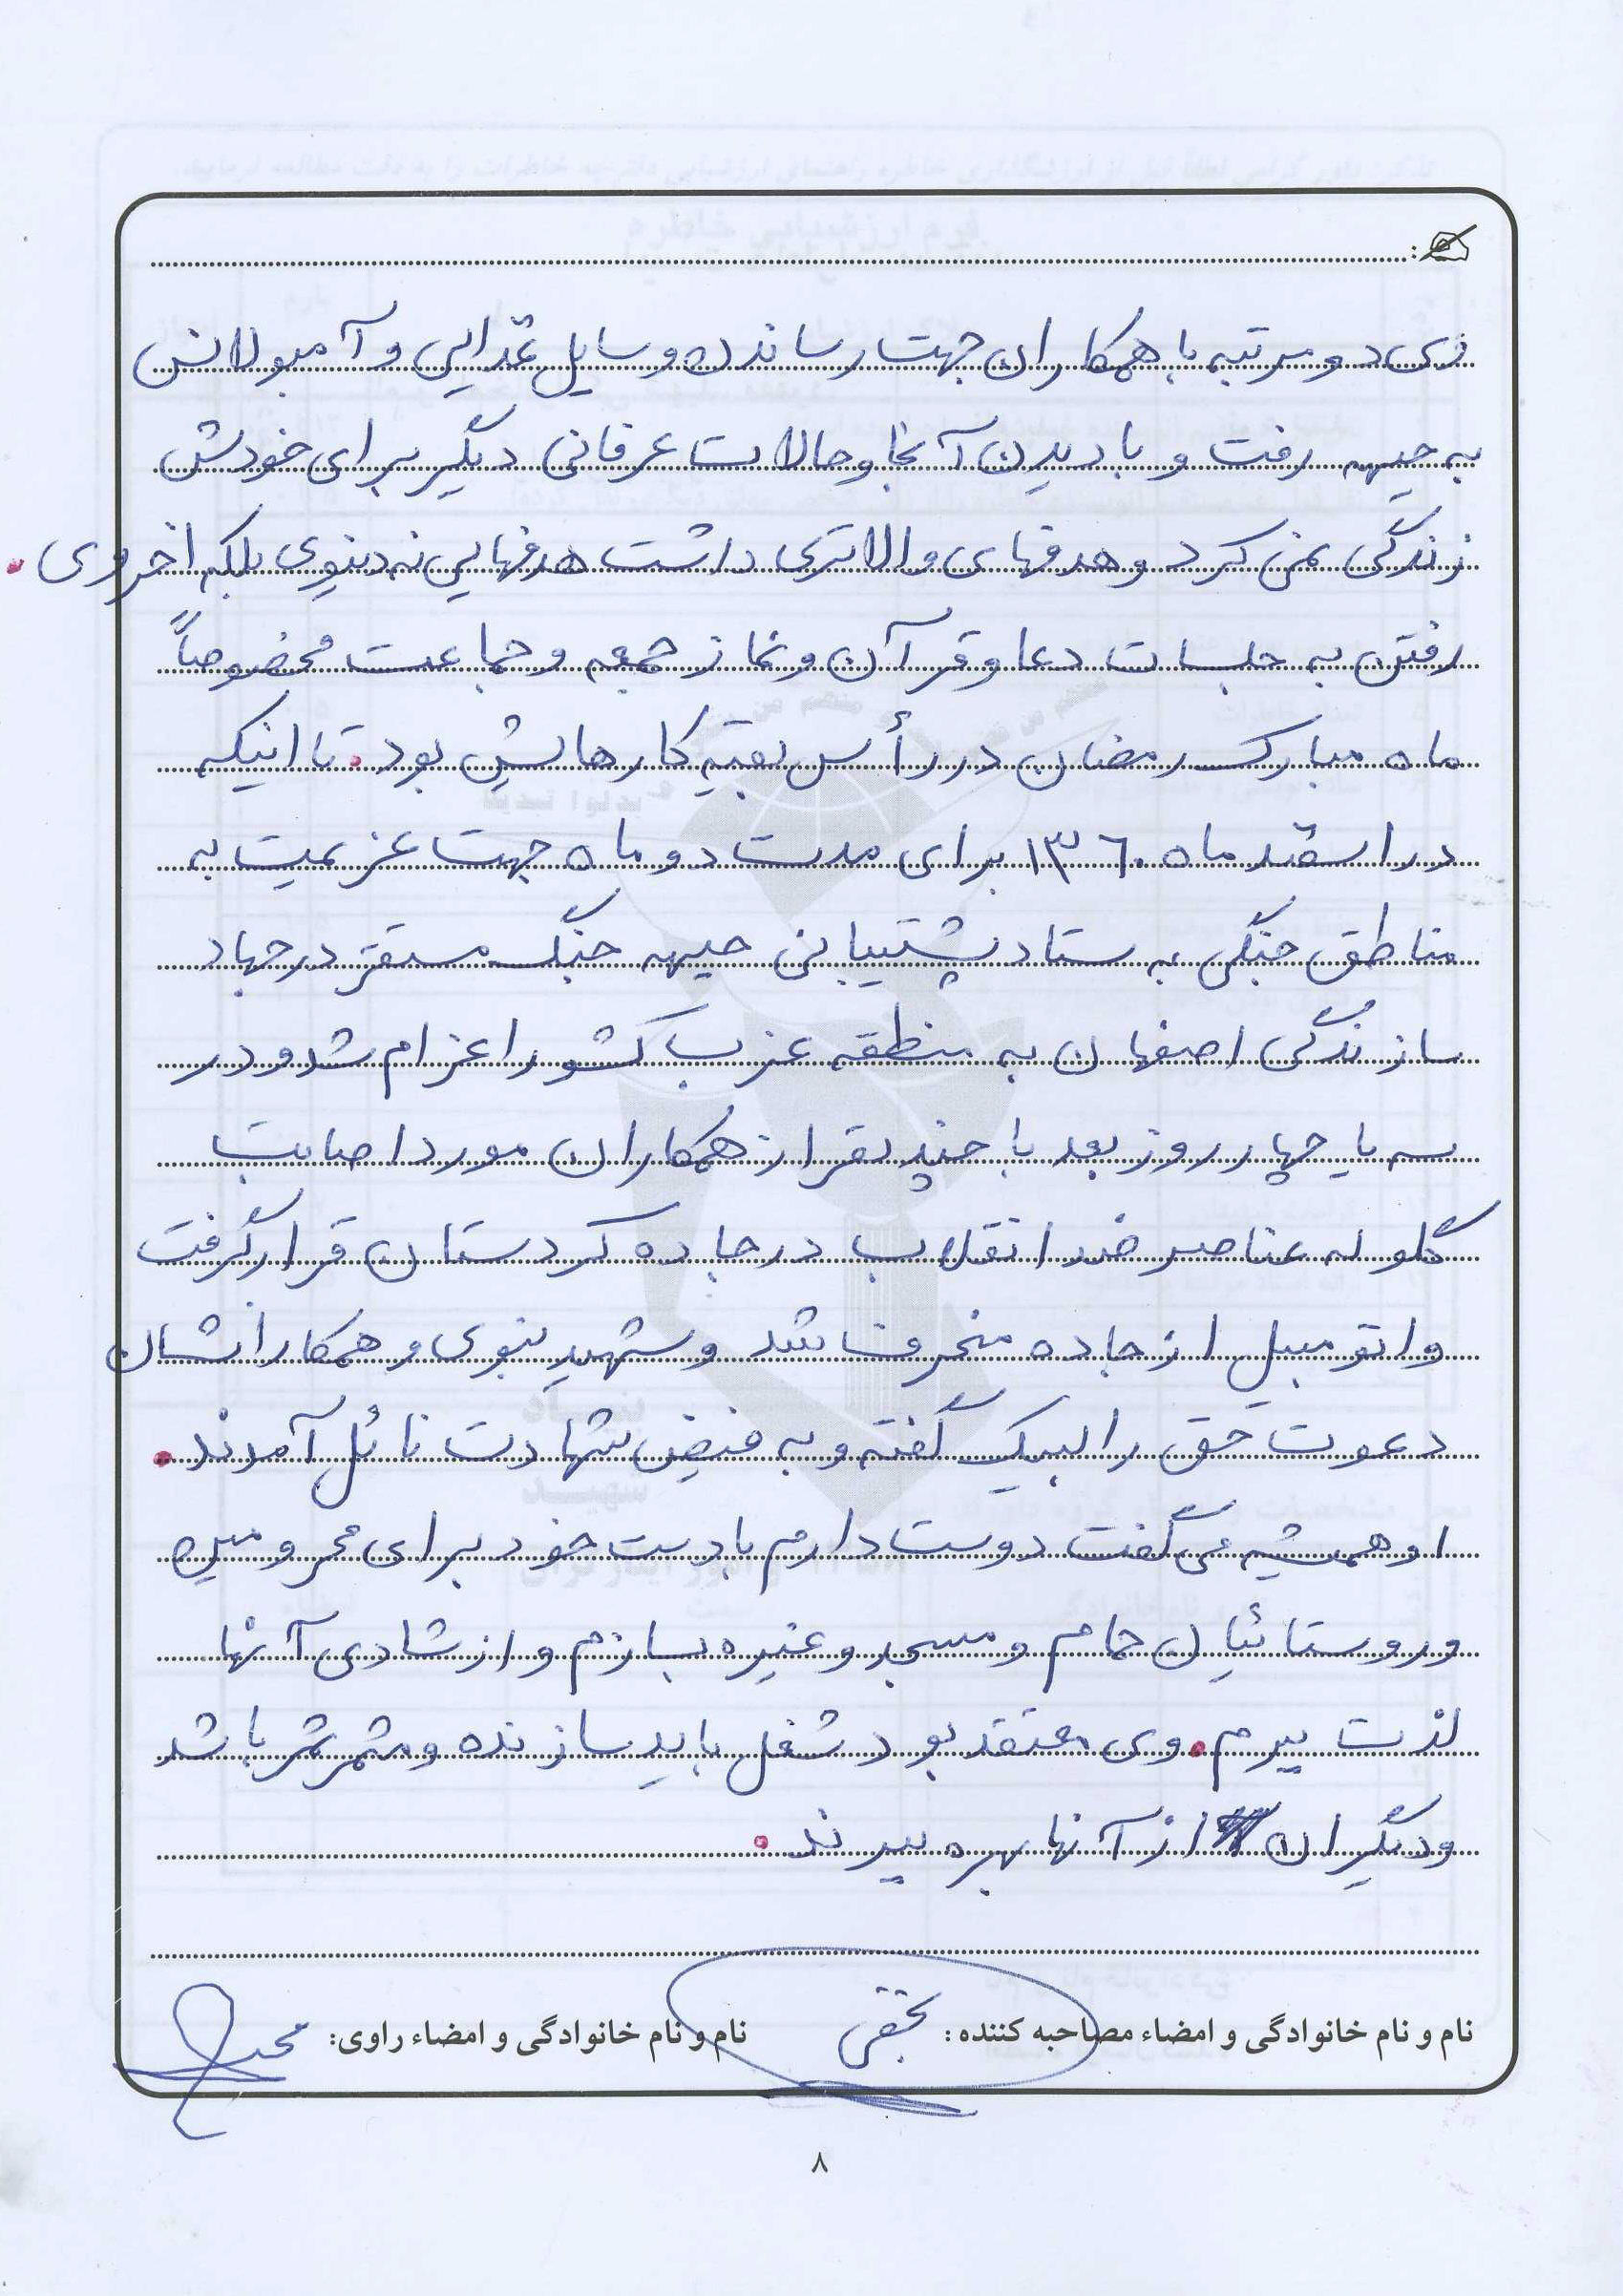 وی دو مرتبه با همکاران جهت رساندن وسایل غذایی و آمبولانس
به جبهه رفت و با دیدن آنجا و حالات عرفانی دیگر برای خودش
زندگی نمی کرد و هدفهای والاتری داشت هدفهایی نه دنیوی بلکه اخروی.
رفتن به جلسات دعا و قرآن و نماز جمعه و جماعت مخصوصاً
ماه مبارک رمضان در رأس بقیه کارهایش بود. تا اینکه
در اسفند ماه ۱۳۶۰ برای مدت دو ماه جهت عزیمت به
مناطق جنگی به ستاد پشتیبانی جبهه جنگ مستقر در جهاد
سازندگی اصفهان به منطقه غرب کشور اعزام شد و در
سه یا چهار روز بعد با چند نفر از همکاران مورد اصابت
گلوله عناصر ضد انقلاب در جاده کردستان قرار گرفت
و اتومبیل از جاده منحرف شد و شهید نبوی و همکارانشان
دعوت حق را لبیک گفته و به فیض شهادت نائل آمدند.
او همیشه می گفت دوست دارم با دست خود برای محرومین
و روستائیان حمام و مسجد و غیره بسازم و از شادی آنها
لذت ببرم. وی معتقد بود شغل باید سازنده و مثمرثمر باشد
و دیگران از آنها بهره ببرند.
نام و نام خانوادگی و امضاء مصاحبه کننده: نام و نام خانوادگی و امضاء راوی:
۸